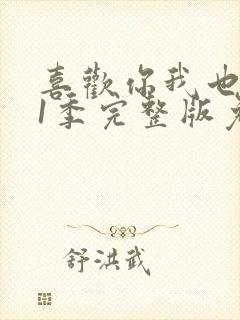 喜歡你我也
1季完整版
舒洪武